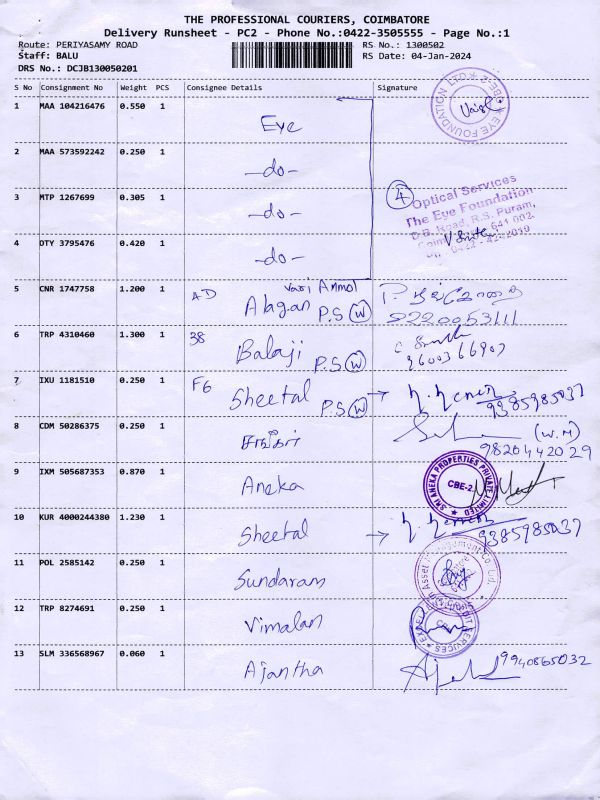 THE PROFESSIONAL COURIERS, COIMBATORE
Delivery Runsheet - PC2 - Phone No.:0422-3505555 - Page No.:1
Route: PERIYASAMY ROAD
RS No.: 1300502
Staff: BALU
RS Date: 04-Jan-2024
DRS No.: DCJB130050201
S No Consignment No Weight PCS Consignee Details Signature
1 MAA 104216476 0.550 1 Eye
EYE FOUNDATION LTD CBE-2
2 MAA 573592242 0.250 1 -do-
3 MTP 1267699 0.305 1 -do-
4
Optical Services
The Eye Foundation
D.B. Road, R.S. Puram,
641 002.
4 DTY 3795476 0.420 1 -do-
5 CNR 1747758 1.200 1 AD Alagan P.S W
9220053111
6 TRP 4310460 1.300 1 38 Balaji P.S W
9600366907
7 IXU 1181510 0.250 1 F6 Sheetal P.S W →
9385985037
8 CDM 50286375 0.250 1 சங்கர்
(W.M)
9820442029
9 IXM 505687353 0.870 1 Aneka
SRI ANEKA PROPERTIES PRIVATE LIMITED
CBE-2
10 KUR 4000244380 1.230 1 Sheetal →
9385985037
11 POL 2585142 0.250 1 Sundaram
Asset Management Co Ltd.
12 TRP 8274691 0.250 1 Vimalan
13 SLM 336568967 0.060 1 Ajantha
9940865032